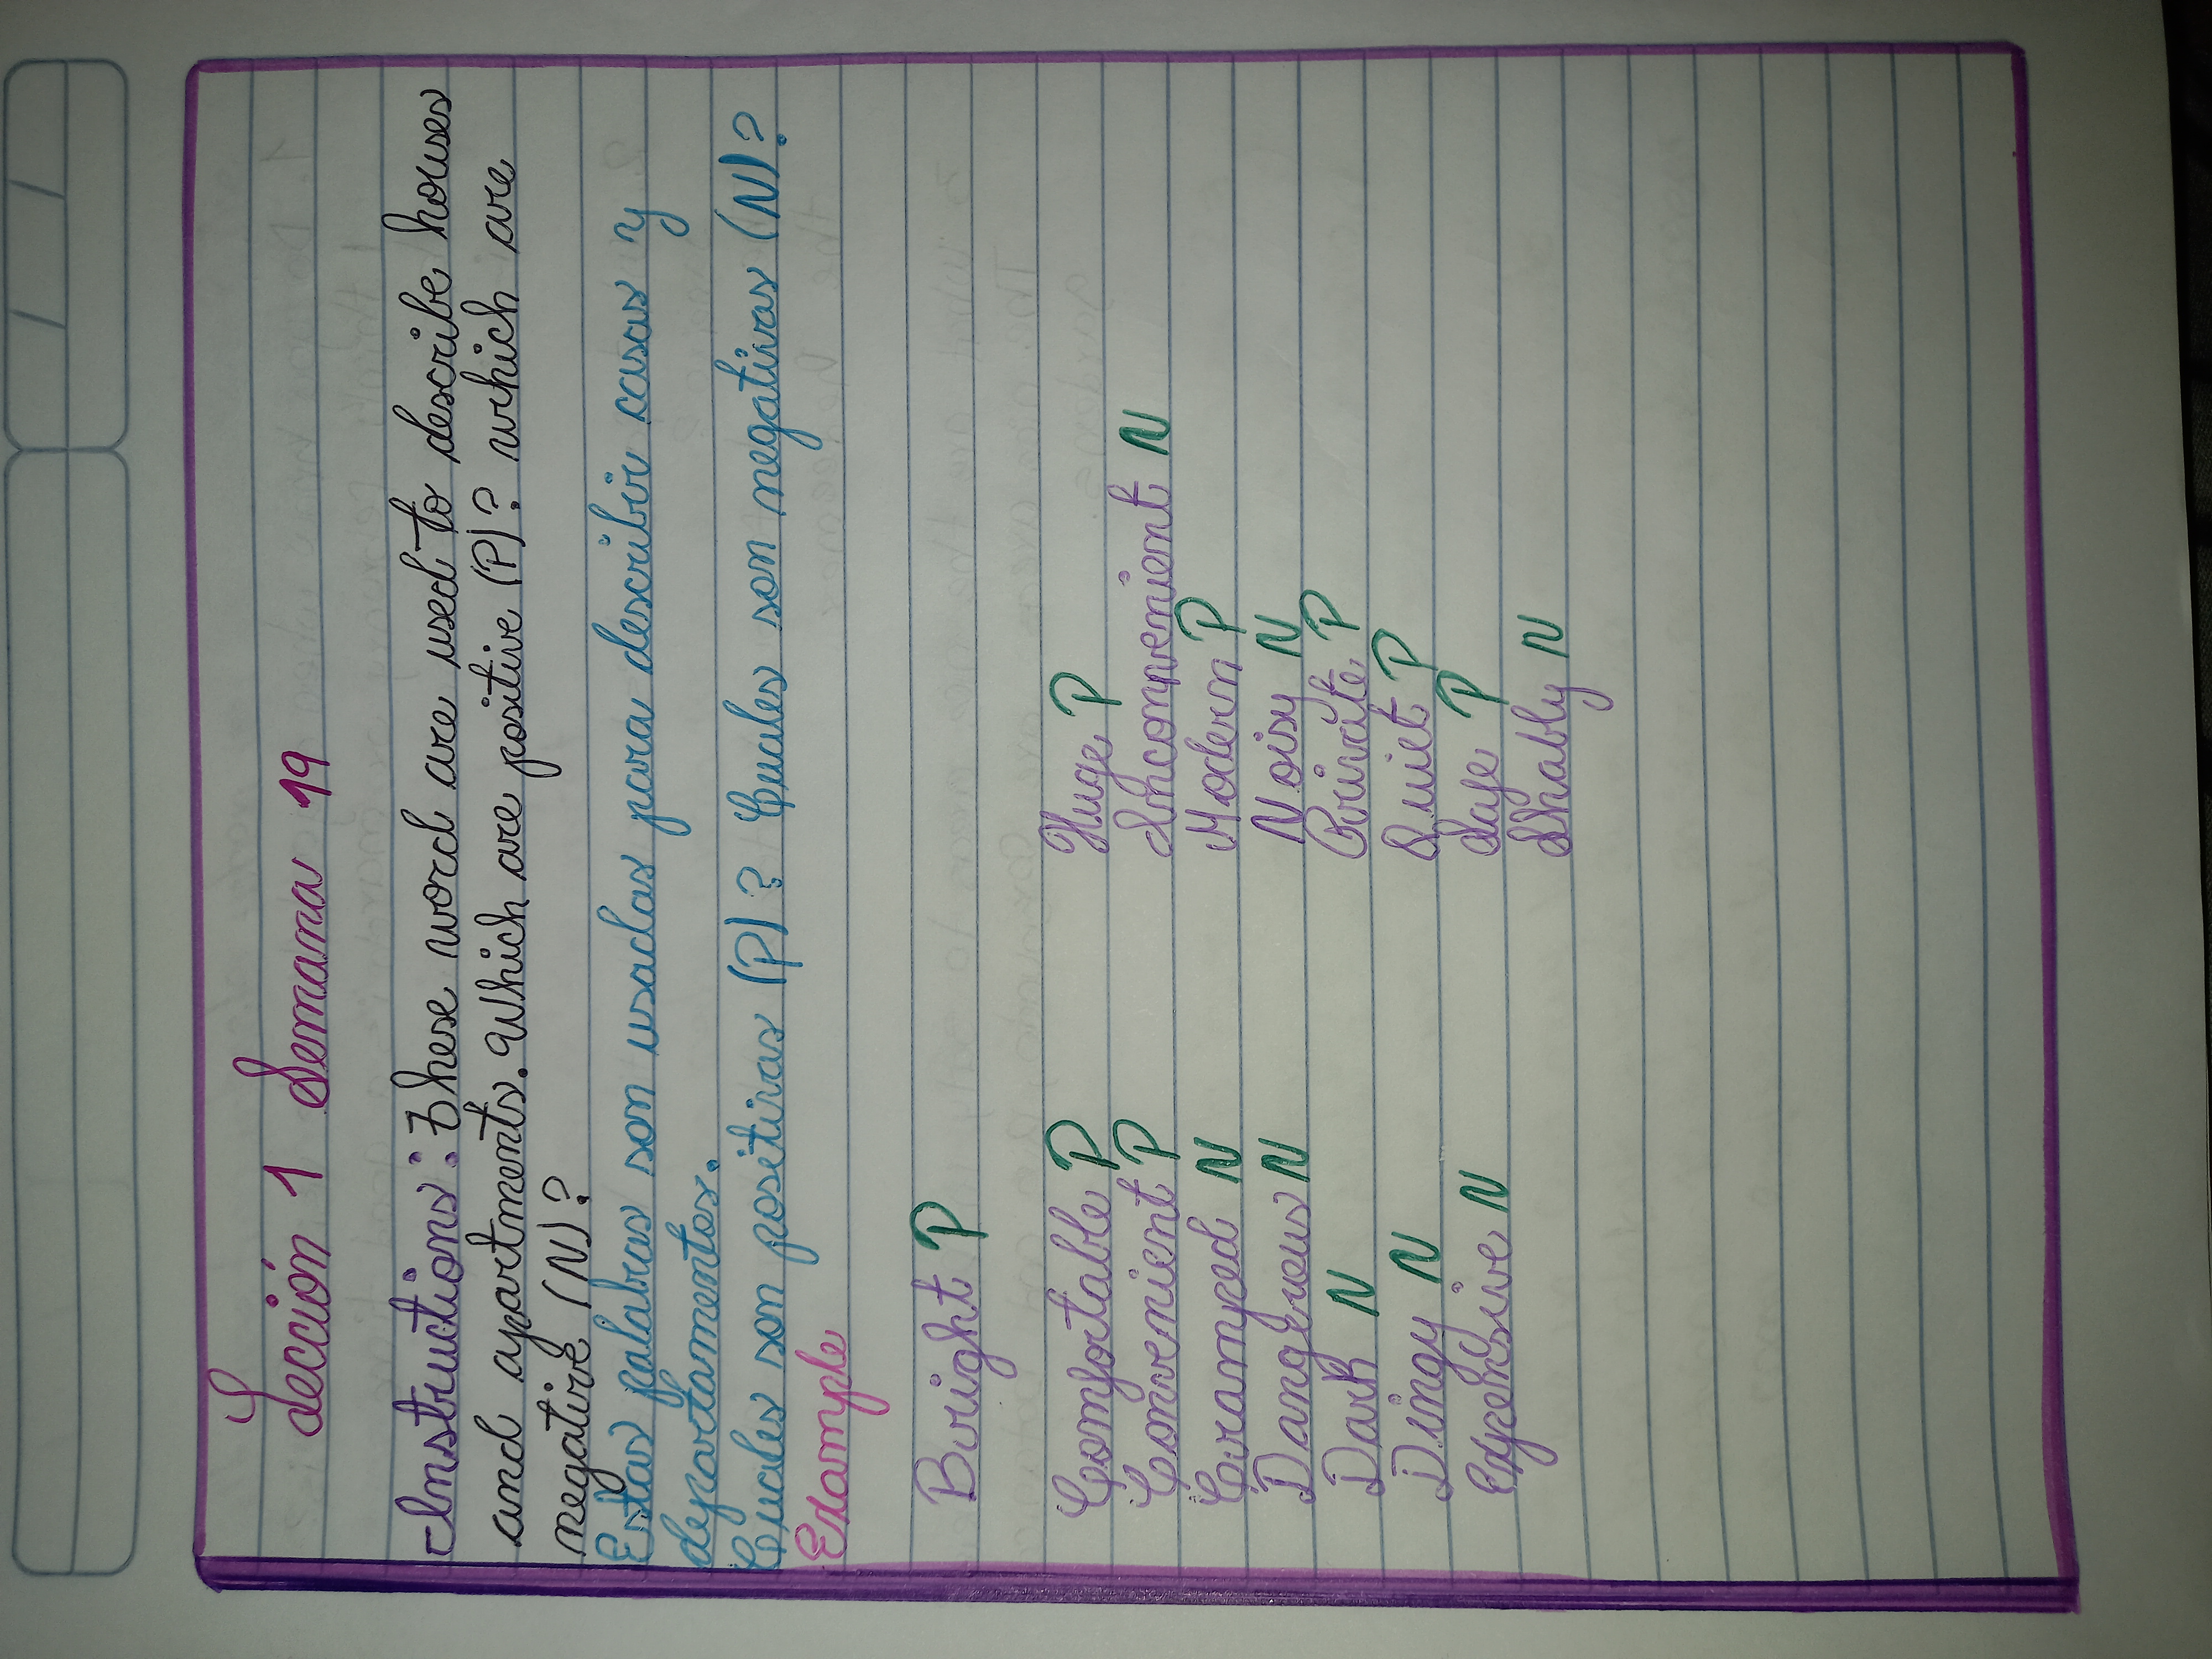 Lección 1 Semana 19
Instructions: These word are used to describe houses
and apartments. Which are positive (P)? which are
negative (N)?
Estas palabras son usadas para describir casas y
departamentos.
Cuales son positivas (P)? Cuales son negativas (N)?
Example
Bright P
Comfortable P
Convenient P
Cramped N
Dangerous N
Dark N
Dingy N
Expensive N
Huge P
Inconvenient N
Modern P
Noisy N
Private P
Quiet P
Safe P
Shably N